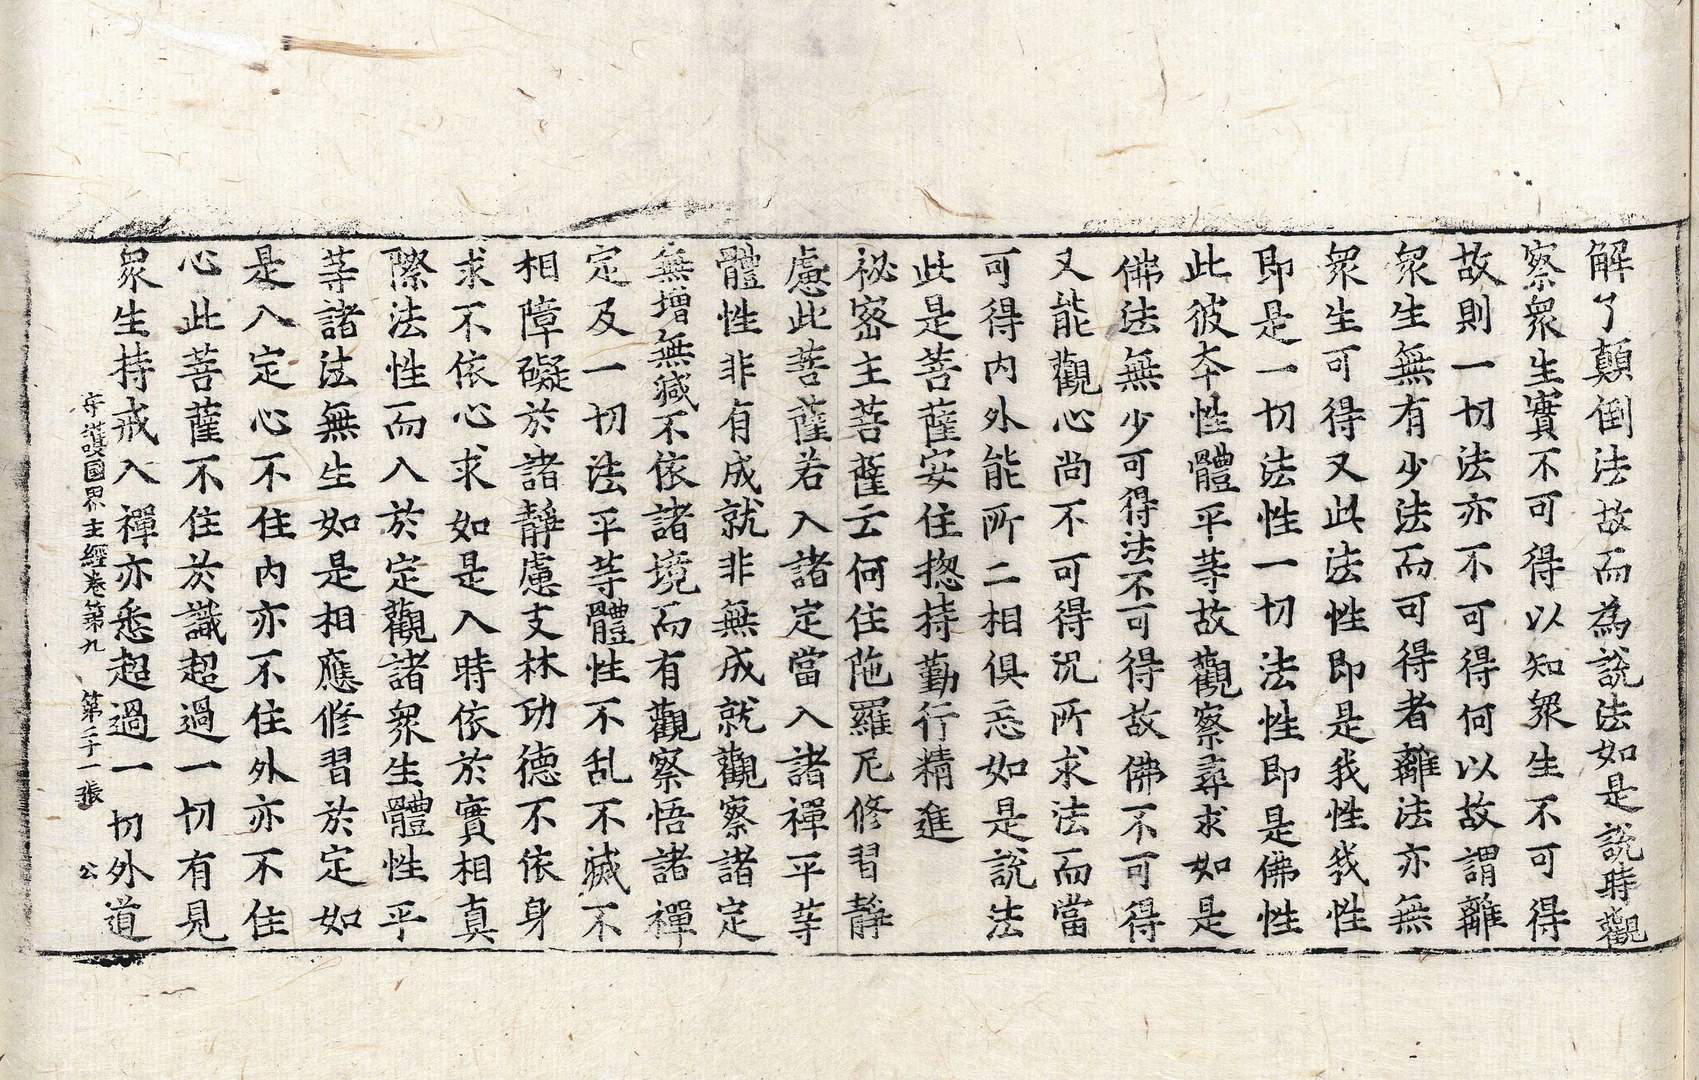 解了顛倒法故而為說法如是說時觀
察衆生實不可得以知衆生不可得
故則一切法亦不可得何以故謂離
衆生無有少法而可得者離法亦無
衆生可得又此法性即是我性我性
即是一切法性一切法性即是佛性
此彼夲性體平等故觀察尋求如是
佛法無少可得法不可得故佛不可得
又能觀心尚不可得況所求法而當
可得内外能所二相俱忘如是說法
此是菩薩安住揔持勤行精進
祕密主菩薩云何住陁羅尼修習靜
慮此菩薩若入諸定當入諸禪平等
體性非有成就非無成就觀察諸定
無增無減不依諸境而有觀察悟諸禪
定及一切法平等體性不乱不減不
相障礙於諸靜慮支林功德不依身
求不依心求如是入時依於實相真
際法性而入於定觀諸衆生體性平
等諸法無生如是相應修習於定如
是入定心不住内亦不住外亦不住
心此菩薩不住於識超過一切有見
衆生持戒入禪亦悉超過一切外道
守護國界主經卷第九 第二十一張 公